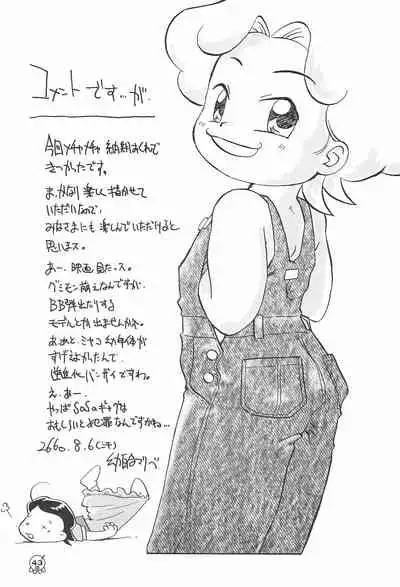 コメントです…が.
今回メチャメチャ 納期おくれで
きつかったです。
まぁかなり楽しく描かせて
いただいたので、
みなさまにも楽しんでいただけると
思いまス。
あー.映画見たっス。
グミモン萌えなんですが.
BB弾出たりする
モデルとか出ませんかネ。
あぁあと.ミヤコの幼年体が
すげぇよかったんで
退化バンザイですわ。
え.あー.
やっぱ
おもしろいと犯罪なんですかね…
2000.8.6
43